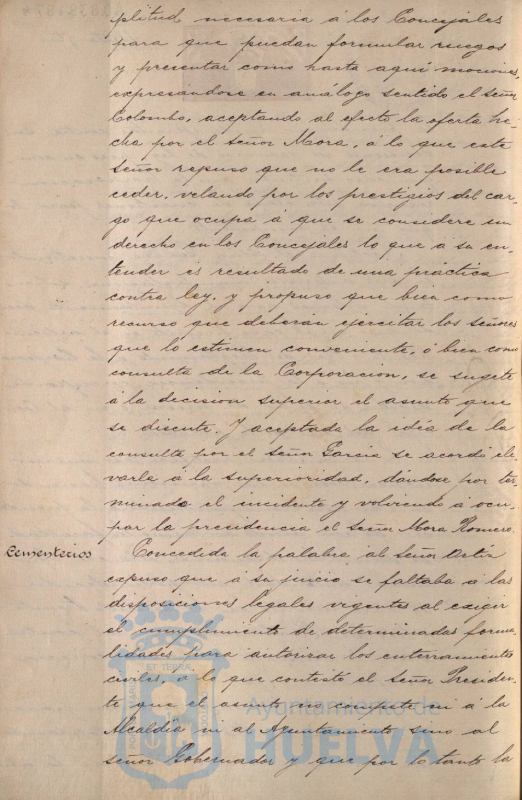 plitud necesaria á los Concejales
para que puedan formular ruegos
y presentar como hasta aquí mociones,
expresandose en análogo sentido el señor
Colombo, aceptando al efecto la oferta he-
cha por el Señor Mora, á lo que este
señor repuso que no le era posible
ceder, velando por los prestigios del car-
go que ocupa á que se considere un
derecho en los Concejales lo que a su en-
tender es resultado de una práctica
contra ley, y propuso que bien como
recurso que deberán ejercitar los señores
que lo estimen conveniente, ó bien como
consulta de la Corporacion, se sugete
á la decision superior el asunto que
se discute. Y aceptada la idea de la
consulta por el Señor Garcia se acordó ele-
varla á la superioridad, dándose por ter-
minado el incidente y volviendo á ocu-
par la presidencia el Señor Mora Romero.
Cementerios
Concedida la palabra al Señor Ortiz
expuso que á su juicio se faltaba a las
disposiciones legales vigentes al exigir
el cumplimiento de determinadas forma-
lidades para autorizar los enterramientos
civiles, á lo que contestó el señor Presiden-
te que el asunto no compete ni á la
Alcaldía ni al Ayuntamiento sino al
señor Gobernador y que por lo tanto la
Ayuntamiento de
HUELVA